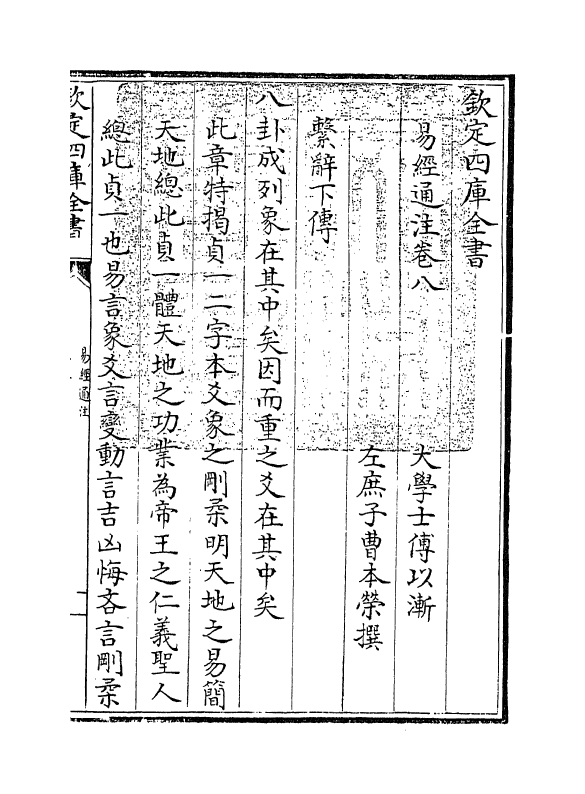 欽定四庫全書
易經通注卷八
大學士傅以漸
左庶子曹本榮撰
繫辭下傳
八卦成列象在其中矣因而重之爻在其中矣
此章特揭貞一二字本爻象之剛柔明天地之易簡
天地總此貞一體天地之功業為帝王之仁義聖人
總此貞一也易言象爻言變動言吉凶悔吝言剛柔
欽定四庫全書
易經通注
一